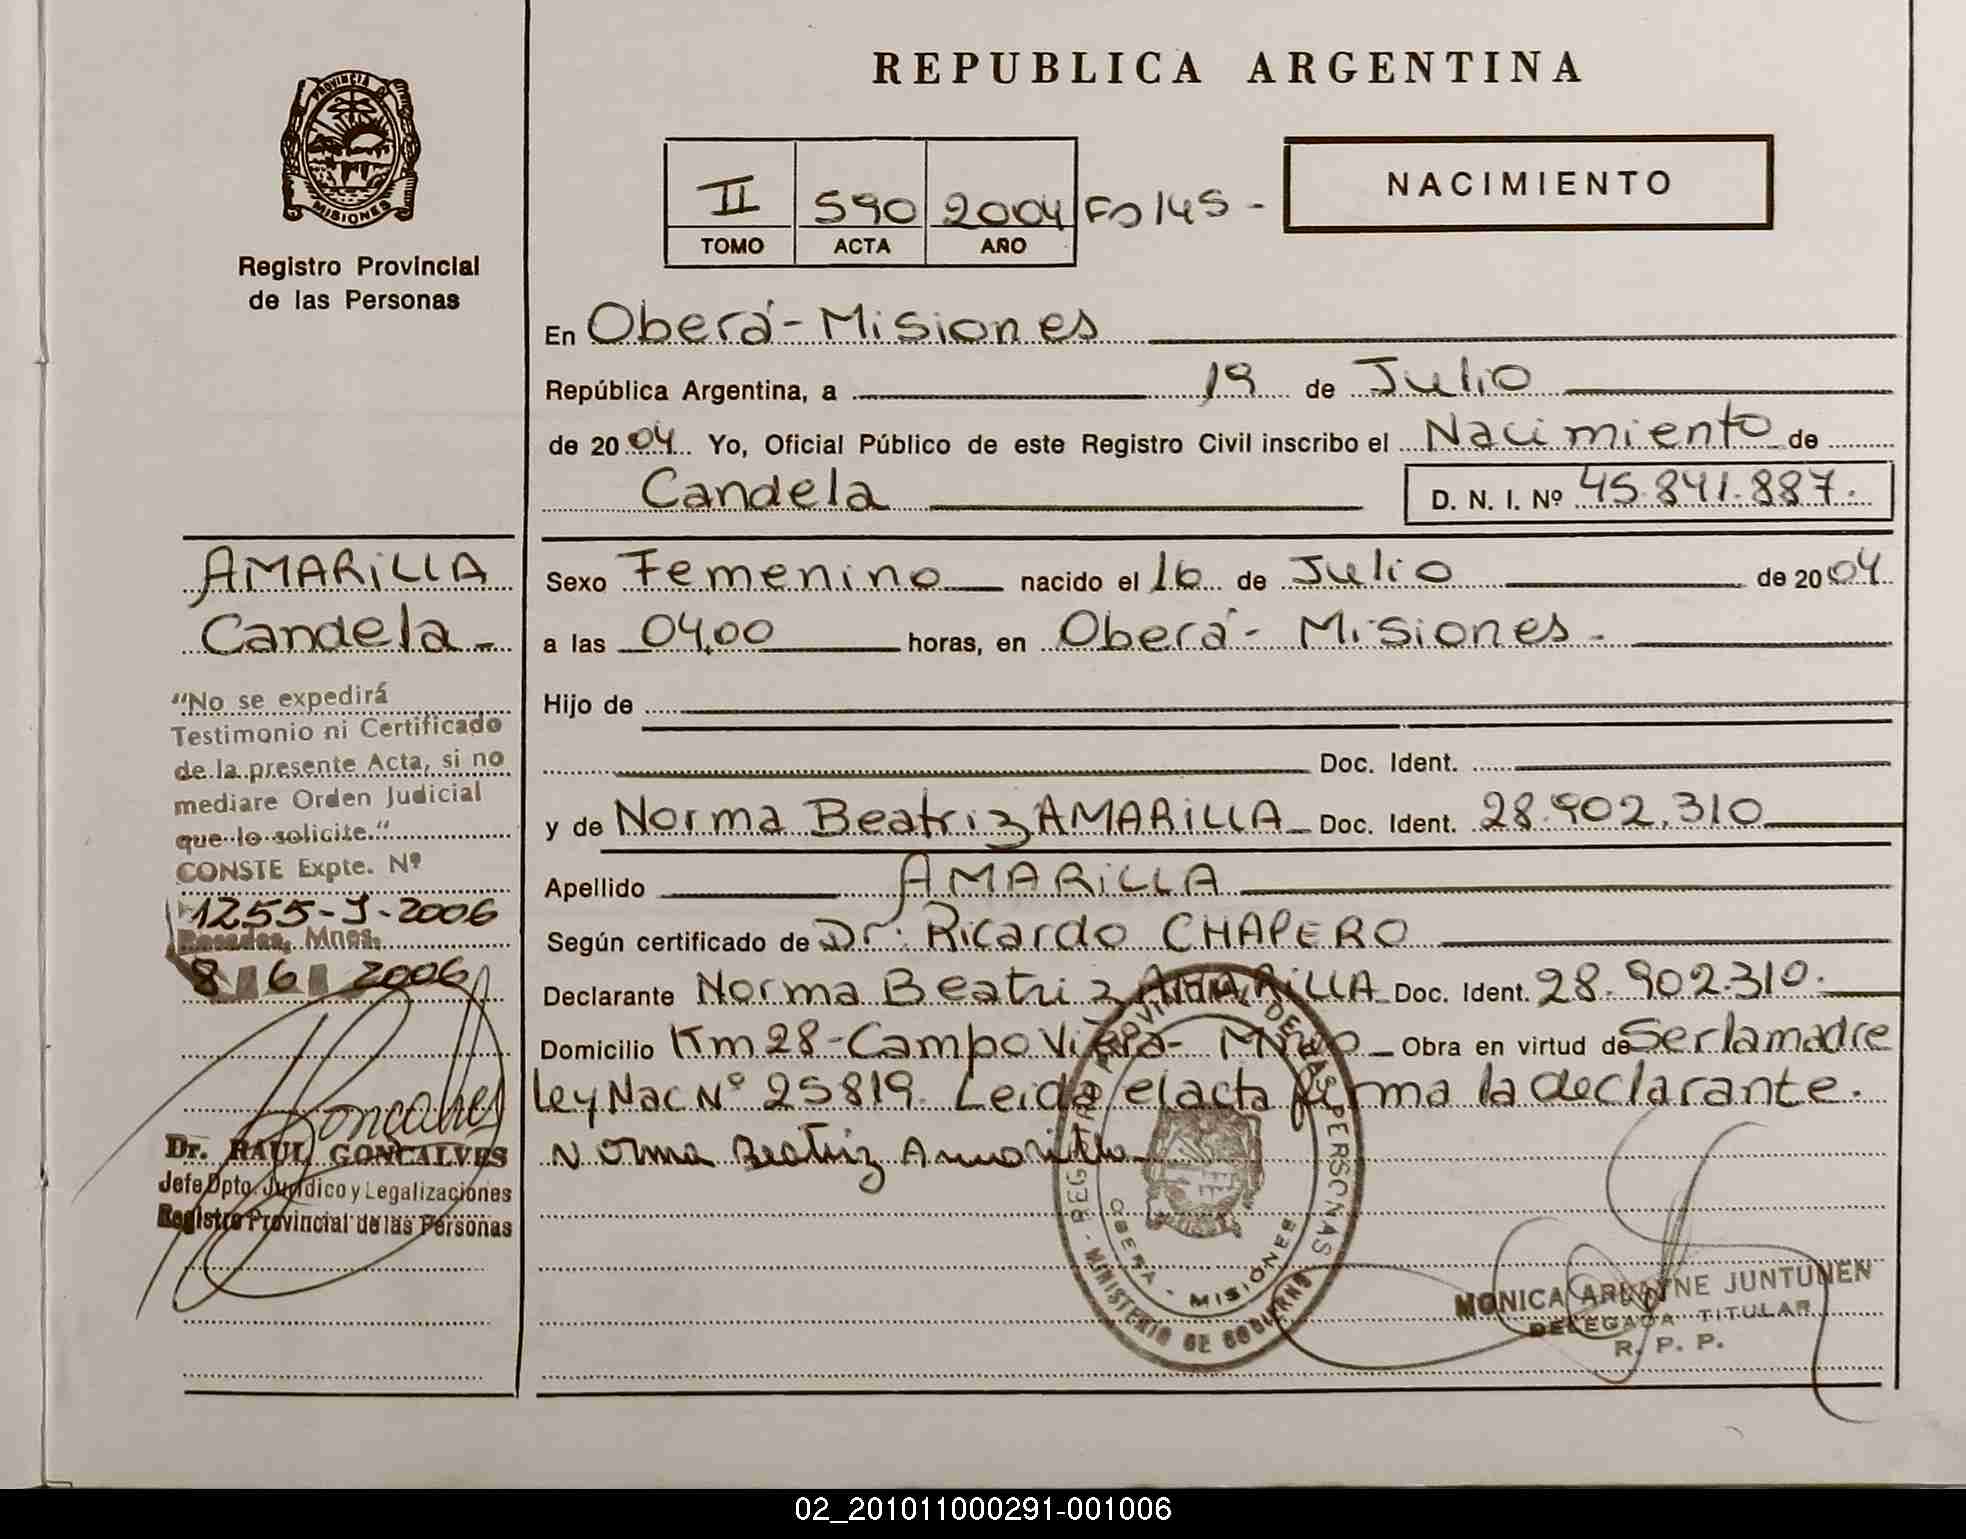 REPUBLICA ARGENTINA
PROVINCIA DE
MISIONES
Registro Provincial
de las Personas
II 590 2004 Fº 145 -
TOMO ACTA AÑO
NACIMIENTO
En Oberá - Misiones
República Argentina, a 19 de Julio
de 2004 Yo, Oficial Público de este Registro Civil inscribo el Nacimiento de
Candela D. N. I. Nº 45.841.887.
Sexo Femenino nacido el 16 de Julio de 2004
a las 04,00 horas, en Oberá - Misiones -
Hijo de
Doc. Ident.
y de Norma Beatriz AMARiLLA Doc. Ident. 28.902.310
Apellido AMARiLLA
Según certificado de Dr. Ricardo CHAPERO
Declarante Norma Beatriz AMARiLLA Doc. Ident. 28.902.310.
Domicilio Km 28 - Campo Viera - Mnes Obra en virtud de Ser la madre
Ley Nac Nº 25819. Leida el acta firma la declarante.
Norma Beatriz Amarilla
REGISTRO PROVINCIAL DE LAS PERSONAS
- MINISTERIO DE GOBIERNO
OBERA - MISIONES
MONICA ARLYNE JUNTUNEN
DELEGADA TITULAR
R. P. P.
AMARiLLA
Candela -
"No se expedirá
Testimonio ni Certificado
de la presente Acta, si no
mediare Orden Judicial
que lo solicite."
CONSTE Expte. Nº
1255-J-2006
Posadas, Mnes.
8 6 2006
Goncalves
Dr. RAUL GONCALVES
Jefe Dpto. Jurídico y Legalizaciones
Registro Provincial de las Personas
02_201011000291-001006